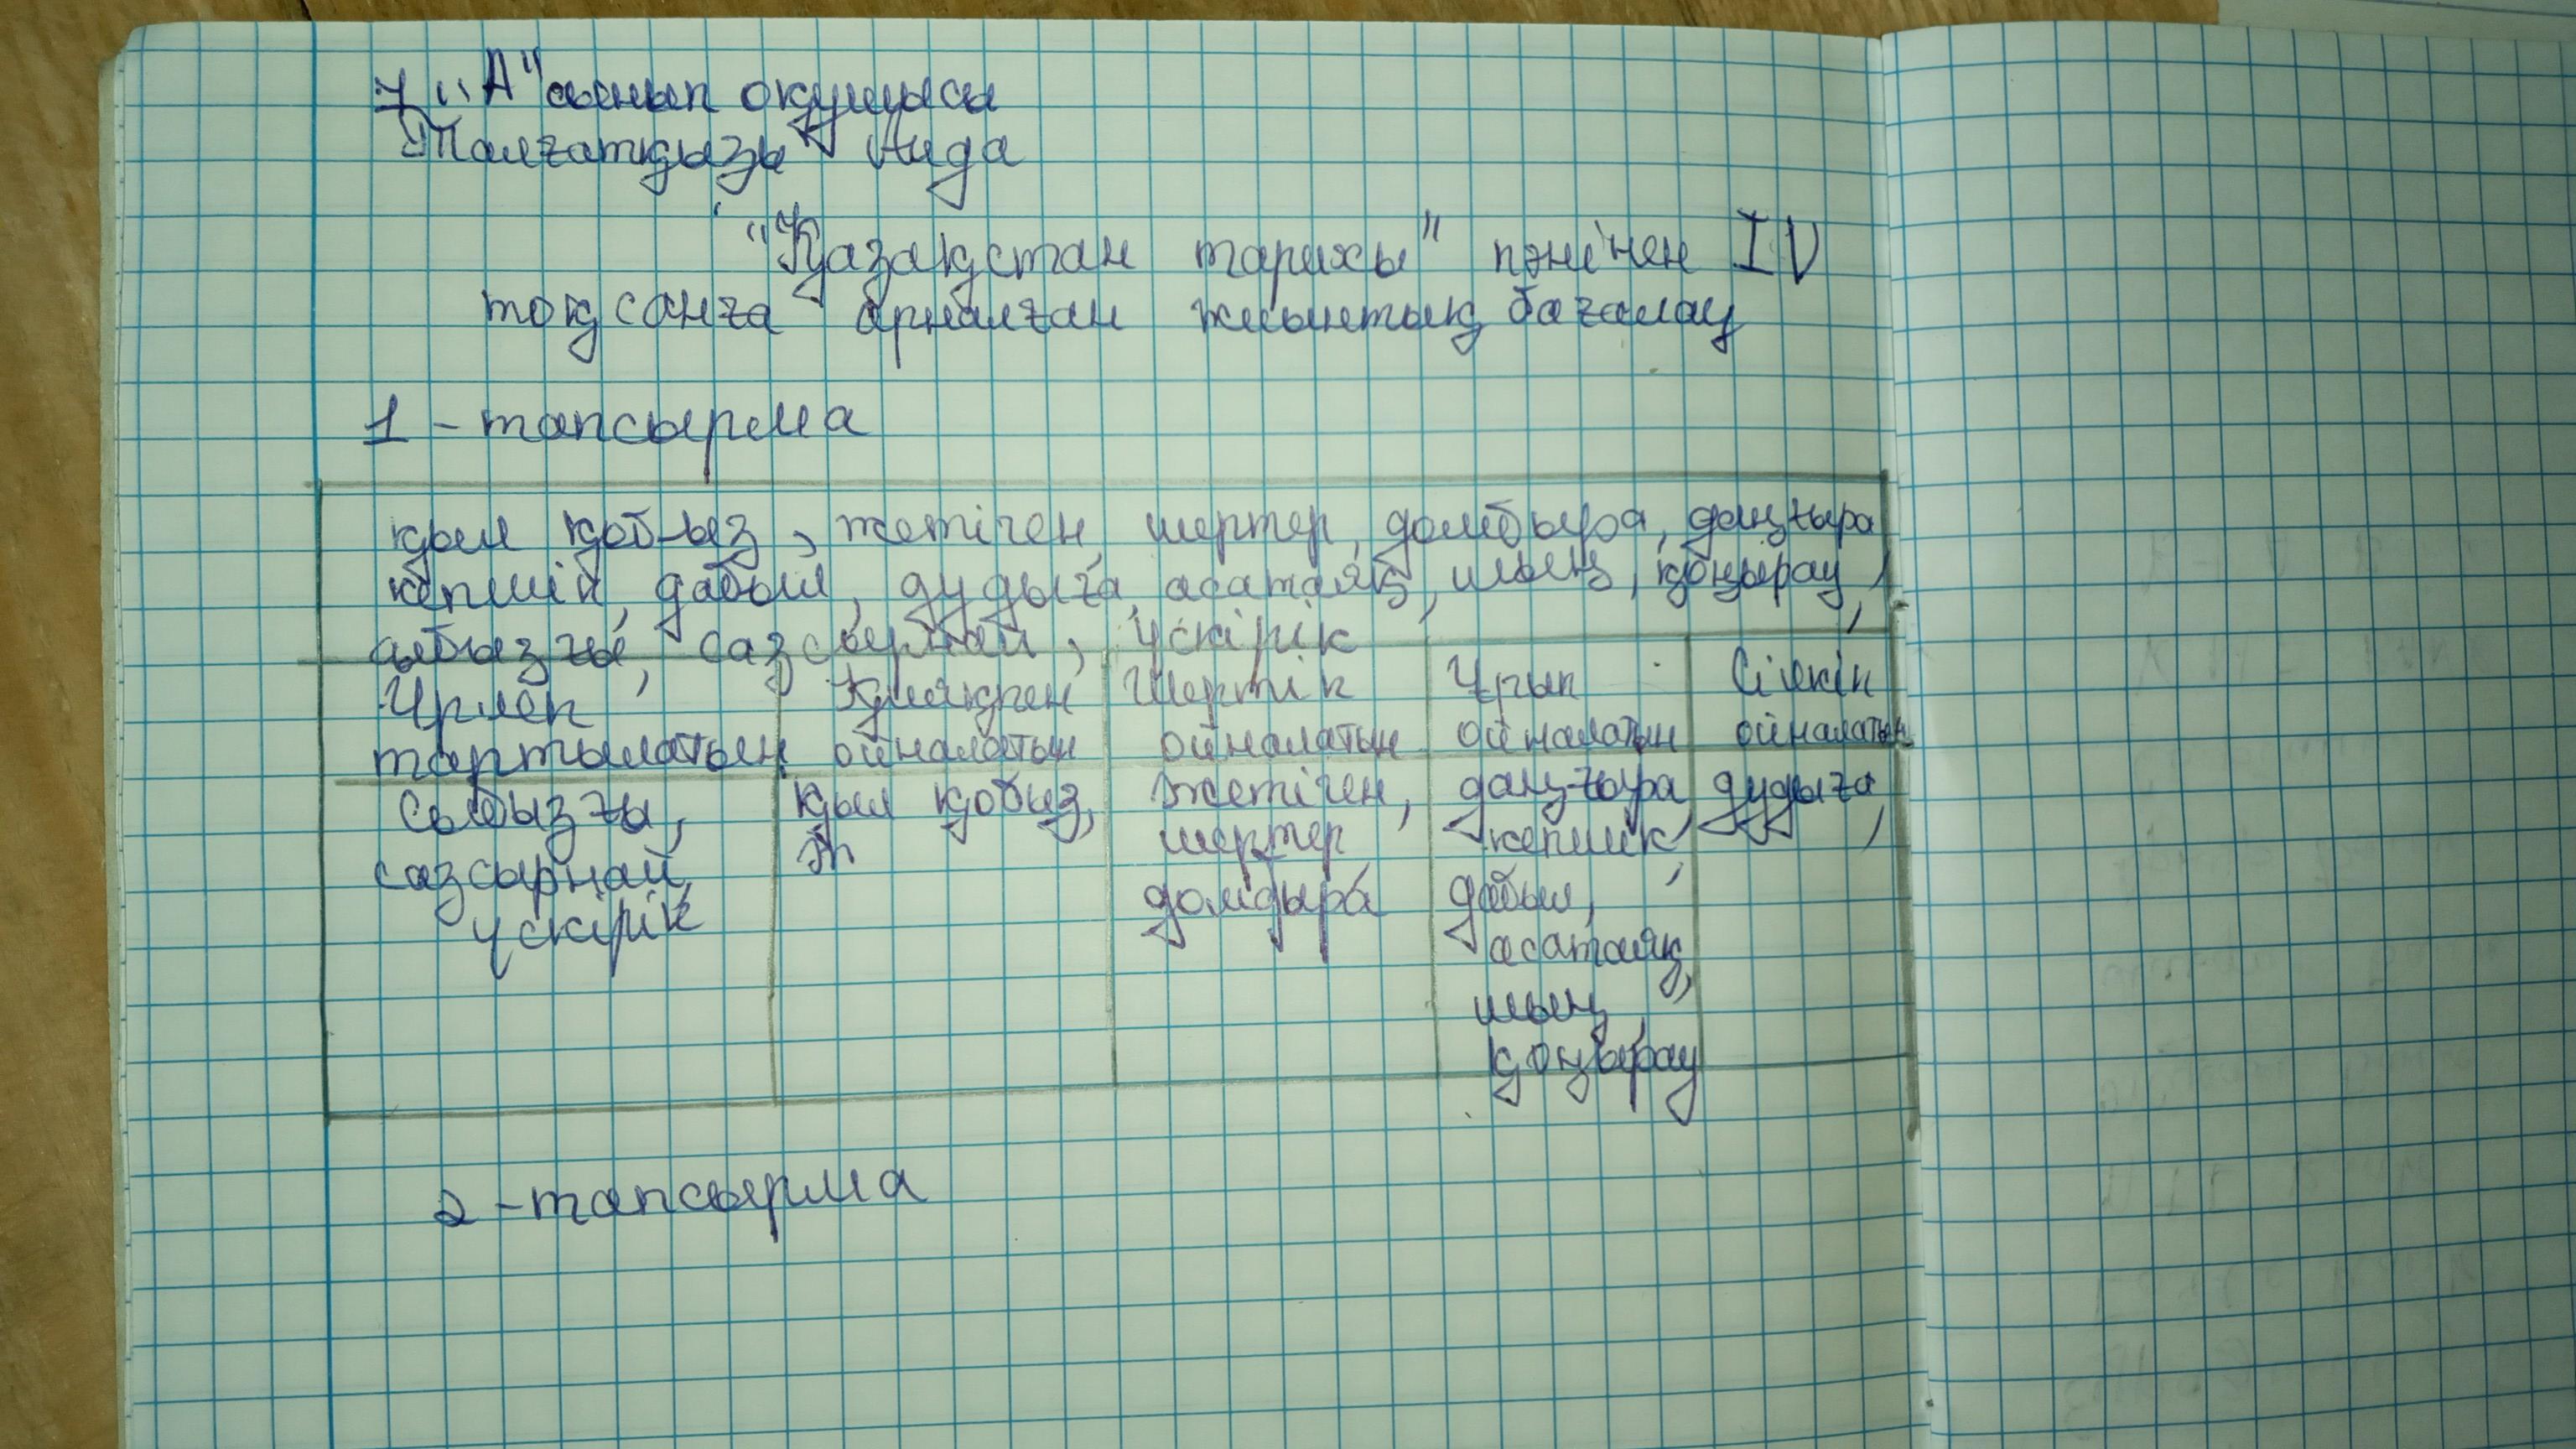 7 "А" сынып оқушысы
Талғатқызы Аида
"Қазақстан тарихы" пәнінен IV
тоқсанға арналған жиынтық бағалау
1 - тапсырма
қыл қобыз, жетіген, шертер, домбыра, даңғыра
кепшік, дабыл, дудыға, асатаяқ, шың, қоңырау,
сыбызғы, сазсырнай, үскірік
Үрлеп тартылатын
Қияқпен ойналатын
Шертіп ойналатын
Ұрып ойналатын
Сілкіп ойналатын
Сыбызғы,
сазсырнай,
үскірік
қыл қобыз,
жетіген,
шертер
домдыра
даңғыра
кепшік,
дабыл,
асатаяқ,
шың,
қоңырау
дудыға,
2 - тапсырма